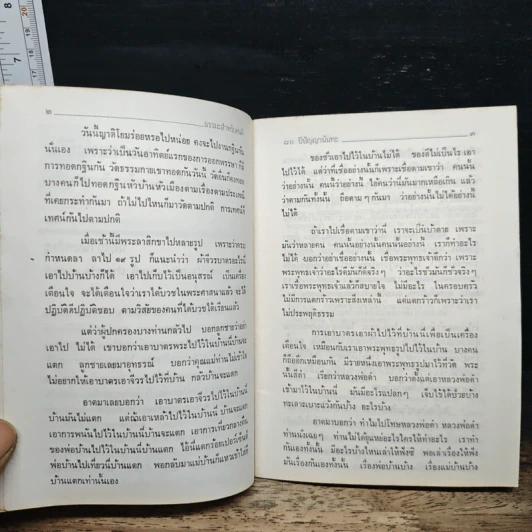 ๒
ธรรมะสำหรับคนดี
วันนี้ญาติโยมร่อยหรอไปหน่อย คงจะไปงานกฐินกัน
นั่นเอง เพราะว่าเป็นวันอาทิตย์แรกของการออกพรรษา ก็มี
การทอดกฐินกัน วัดธรรมกายเขาทอดกันวันนี้ วัดอื่นก็คงทอด
บางคนก็ไปทอดกฐินหัวบ้านหัวเมืองตามเรื่องตามประเพณี
ที่เคยกระทำกันมา ถ้าไม่ไปไหนก็มาวัดตามปกติ การเทศน์ก็
เทศน์กันไปตามปกติ
เมื่อเช้านี้มีพระลาสิกขาไปหลายรูป เพราะว่าครบ
กำหนดลา ลาไป ๑๙ รูป ก็แนะนำว่า ผ้าจีวรบาตรอะไรนี่
เอาไปบ้านบ้างก็ได้ เอาไปเก็บไว้เป็นอนุสรณ์ เป็นเครื่อง
เตือนใจ จะได้เตือนใจว่าเราได้บวชในพระศาสนาแล้ว จะได้
ปฏิบัติดีปฏิบัติชอบ ตามวิสัยของคนที่ได้บวชได้เรียนแล้ว
แต่ว่าผู้ปกครองบางท่านกลัวไป บอกลูกชายว่าอย่า
เอาไป ไม่ได้ เขาบอกว่าเอาบาตรพระไปไว้ในบ้านนี่ บ้าน
แตก ลูกชายเลยมาอุทธรณ์ บอกว่าคุณแม่ท่านไม่เข้าใจ
ไม่อยากให้เอาบาตรเอาจีวรไปไว้ที่บ้าน กลัวบ้านจะแตก
อาตมาเลยบอกว่า เอาบาตรเอาจีวรไปไว้ในบ้านนี่
บ้านมันไม่แตก แต่ถ้าเอาเหล้าไปไว้ในบ้านนี่ บ้านจะแตก
เอาการพนันไปไว้ในบ้านนี่บ้านจะแตก เอาการเที่ยวกลางคืน
ของพ่อบ้านไปไว้ในบ้านนี่บ้านแตก
พ่อบ้านไปเที่ยวนี่บ้านแตก พอกลับมาแม่บ้านก็
บ้านแตกเท่านั้นเอง
๘๓ ปีปัญญานันทะ
๓
ของชั่วเอาไปไว้ในบ้านไม่ได้ ของดีไม่เป็นไร เอา
ไปไว้ได้ แต่ว่าที่เชื่ออย่างนั้นก็เพราะเชื่อตามเขาว่า คนนั้น
ว่าอย่างนั้น คนนี้ว่าอย่างนี้ ไอ้คนว่านี่มันมากเหลือเกิน แล้ว
ว่าตามกันทั้งนั้น ถือตาม ๆ กันมา ว่าอย่างนั้นไม่ได้อย่างนี้
ไม่ได้
ถ้าเราไปเชื่อตามเขาว่านี่ เราจะเป็นบ้าตาย เพราะ
มันว่าหลายคน คนนั้นอย่างนั้นคนนั้นอย่างนี้ เราก็ทำอะไร
ไม่ได้ บอกว่าอย่าเชื่ออย่างนั้น เชื่อพระพุทธเจ้าดีกว่า เพราะ
พระพุทธเจ้าว่าอะไรดีมันก็ดีจริง ๆ ว่าอะไรชั่วมันก็ชั่วจริง ๆ
เราเชื่อพระพุทธเจ้าแล้วก็สบายใจ ไม่มีอะไร ในครอบครัว
ไม่มีการแตกร้าวเพราะสิ่งเหล่านี้ แต่แตกร้าวก็เพราะว่าเรา
ไม่ประพฤติธรรม
การเอาบาตรเอาผ้าไปไว้ที่บ้านนี่เพื่อเป็นเครื่อง
เตือนใจ เหมือนกับเราเอาพระพุทธรูปไปไว้ในบ้าน บางคน
ก็ถืออีกเหมือนกัน มีรายหนึ่งเอาพระพุทธรูปมาไว้ที่วัด พระ
นั้นสีดำ เรียกว่าหลวงพ่อดำ บอกว่าตั้งแต่เอาหลวงพ่อดำ
เข้ามาไว้ในบ้านนี่ มันมีอะไรแปลกๆ เจ็บไข้ได้ป่วยบ้าง
ทะเลาะเบาะแว้งกันบ้าง อะไรบ้าง
อาตมาบอกว่า ทำไมไปโทษหลวงพ่อดำ หลวงพ่อดำ
ท่านนั่งเฉยๆ ท่านไม่ได้ยุแหย่อะไรใครให้ทำอะไร เราทำ
กันเองทั้งนั้น มีอะไรบ้างไหนเล่าให้ฟังซิ พอเล่าเรื่องให้ฟัง
มันเรื่องกันเองทั้งนั้น เรื่องพ่อบ้านบ้าง เรื่องแม่บ้านบ้าง